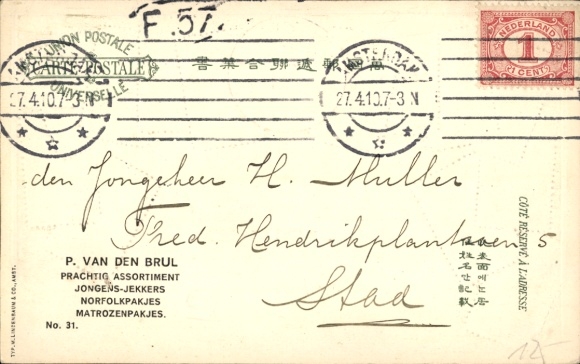 F. 57.
UNION POSTALE
UNIVERSELLE
CARTE POSTALE
萬國郵遞聯合葉書
AMSTERDAM
27.4.10.7-3 N
27.4.10.7-3 N
NEDERLAND
1
CENT
den Jongeheer H. Muller
Fred. Hendrikplantsoen 5
Stad
CÔTÉ RÉSERVÉ À L'ADRESSE
P. VAN DEN BRUL
PRACHTIG ASSORTIMENT
JONGENS-JEKKERS
NORFOLKPAKJES
MATROZENPAKJES.
No. 31.
TYP. M. LINDENBAUM & CO., AMST.
125